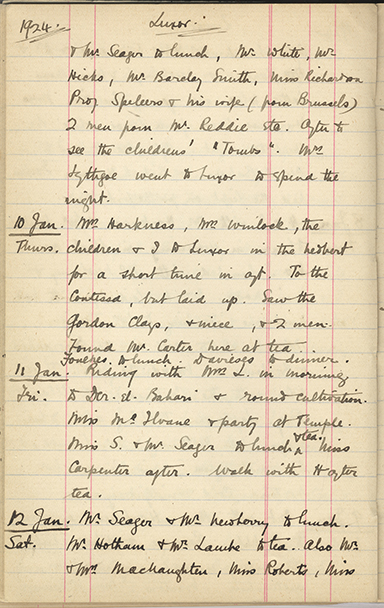 1924. Luxor.
& Mr. Seager to lunch, Mr. White, Mr.
Hicks, Mr. Barclay Smith, Miss Richardson
Prof. Speleers & his wife (from Brussels)
2 men from Mr. Reddie etc. After to
see the childrens' "Tombs". Mrs
Lythgoe went to Luxor to spend the
night.
10 Jan. Mrs Harkness, Mrs Winlock, the
Thurs. children & I to Luxor in the
for a short time in aft. To the
Contessa, but laid up. Saw the
Gordon Clays, & niece, & 2 men.
Found Mr. Carter here at tea
to lunch. Davieses to dinner.
11 Jan. Riding with Mrs L. in morning
Fri. to Der. el. Bahari & round cultivation.
Miss McIlvane & party at Temple.
Miss S. & Mr. Seager to lunch & tea. Miss
Carpenter after. Walk with H after
tea.
12 Jan. Mr. Seager & Mr. Newberry to lunch.
Sat. Mr. Hotham & Mr. Lambe to tea. Also Mr.
& Mrs. MacNaughten, Miss Roberts, Miss